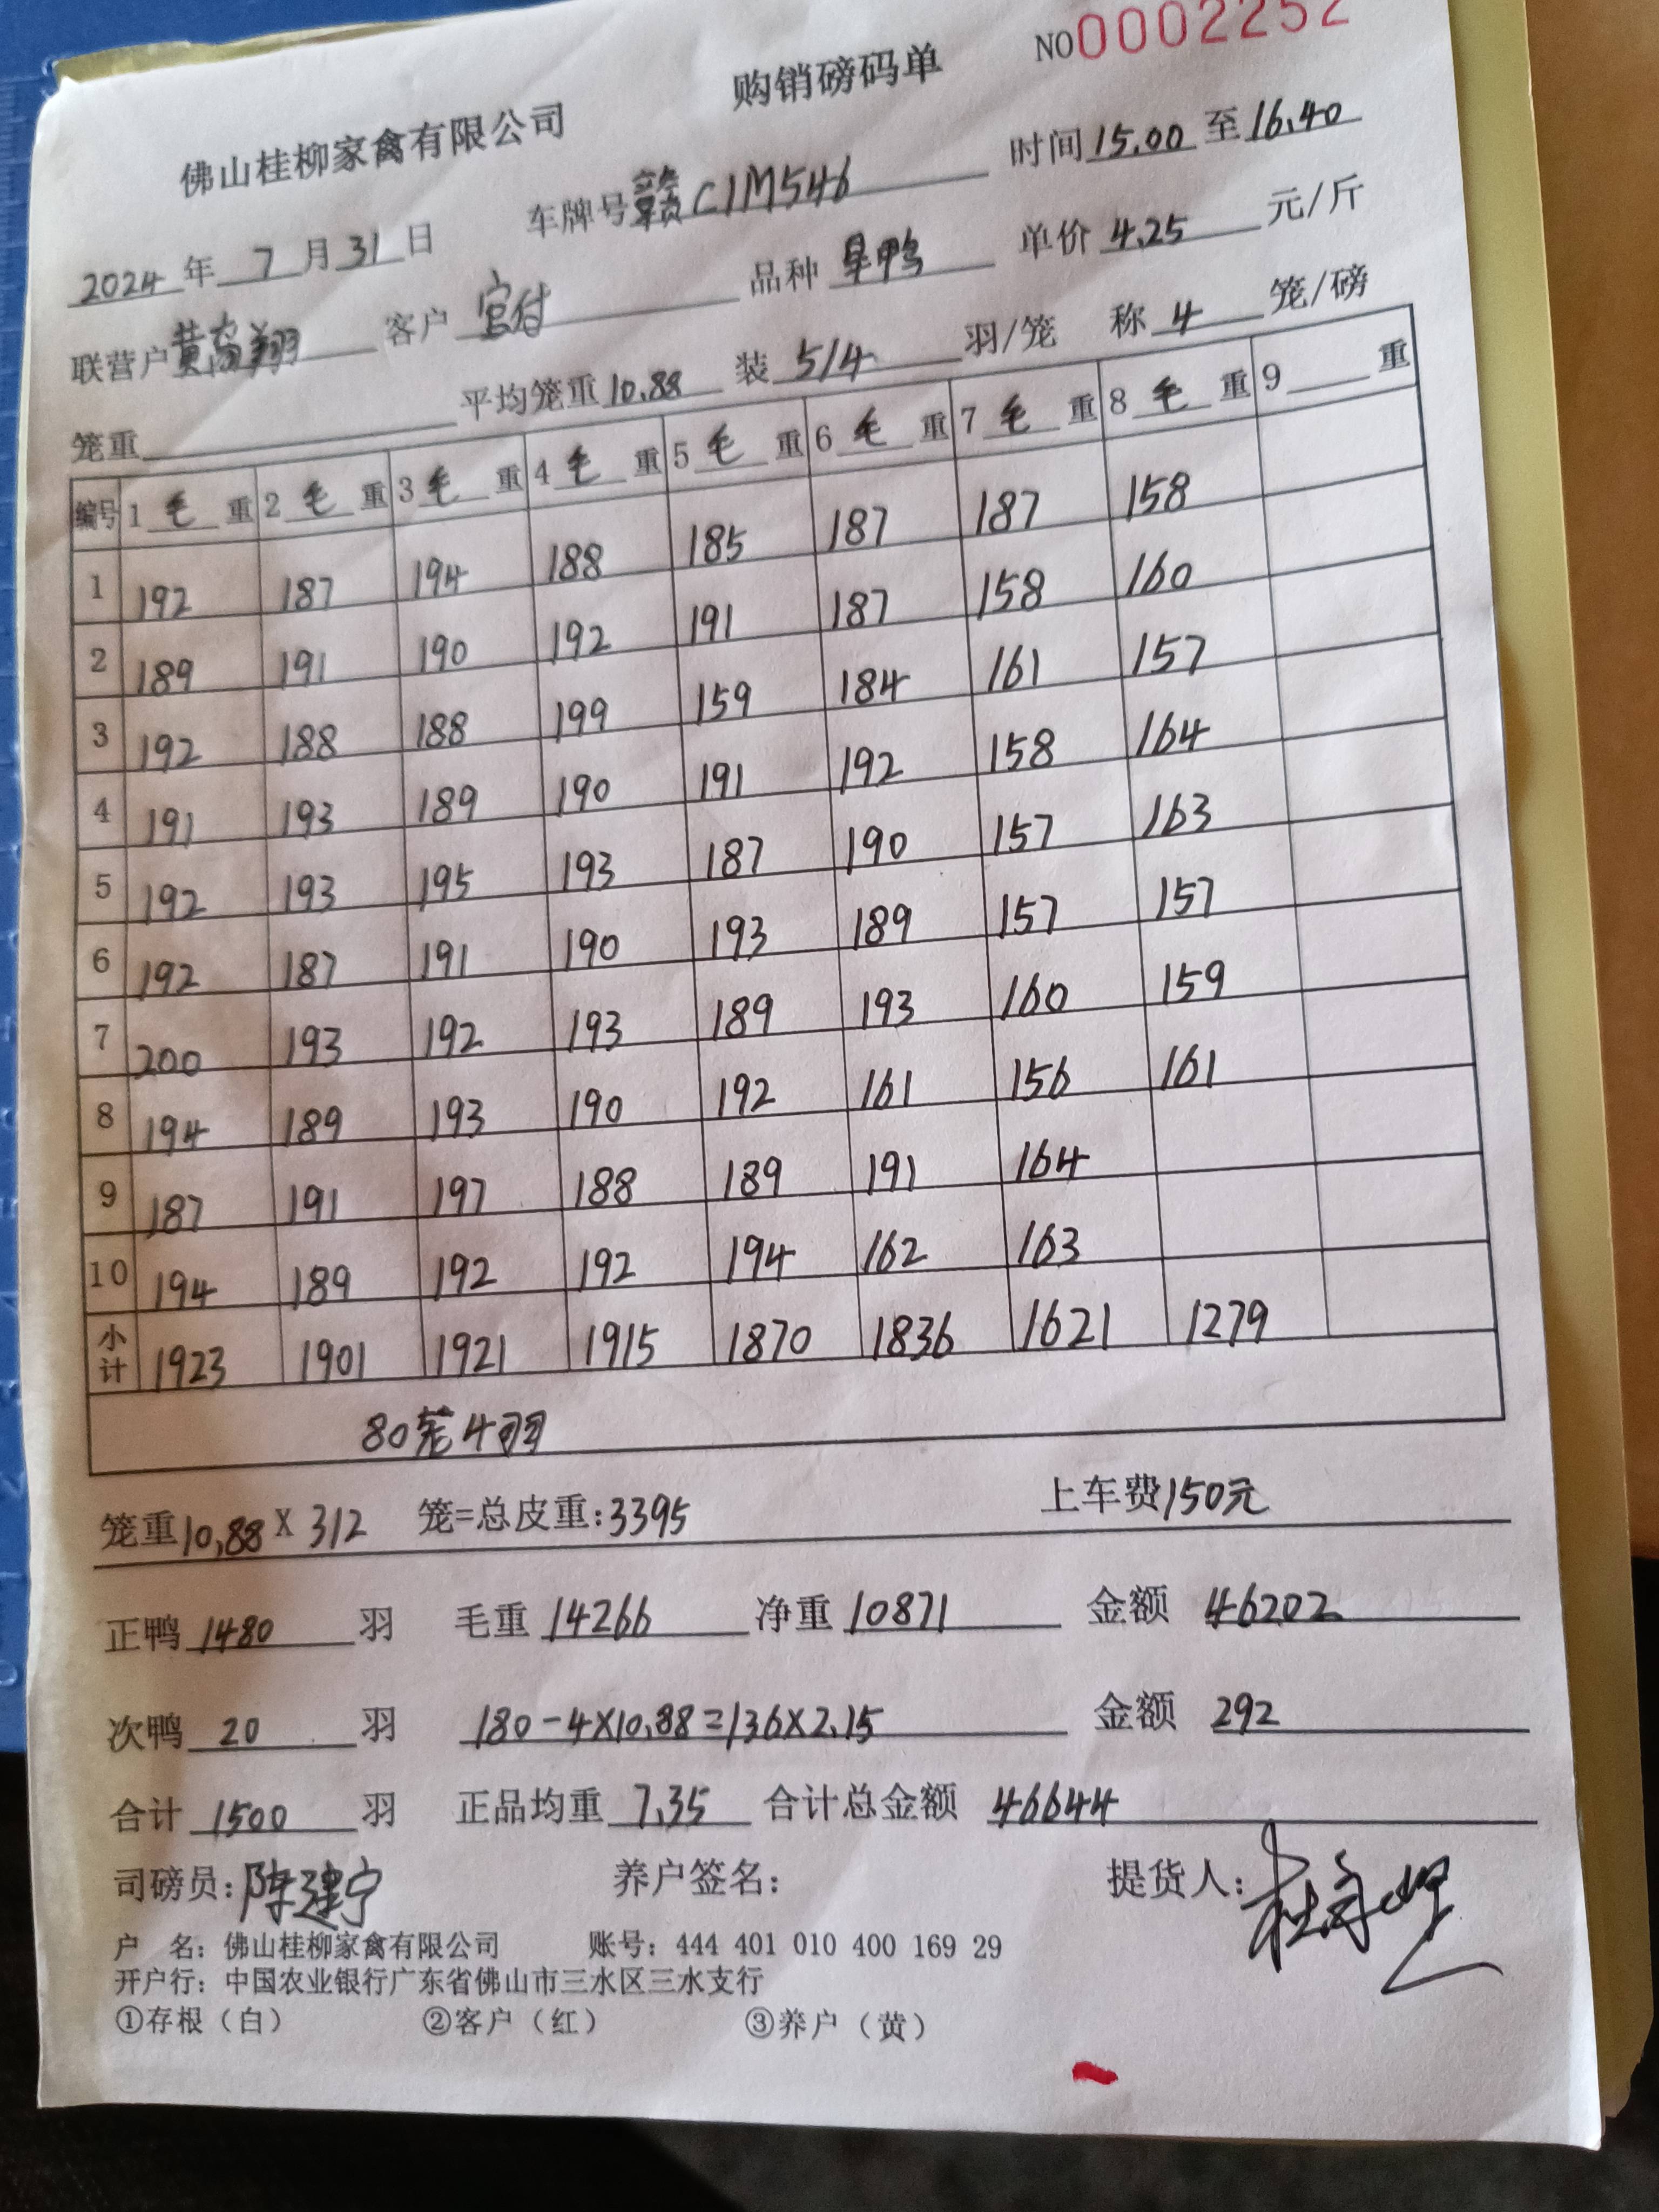 购销磅码单 NO0002252
佛山桂柳家禽有限公司
2024年7月31日 车牌号赣C1M546 时间15.00至16.40
联营户黄富翔 客户官付 品种旱鸭 单价4.25元/斤
笼重 平均笼重10.88 装5/4羽/笼 称4笼/磅
编号 1毛重 2毛重 3毛重 4毛重 5毛重 6毛重 7毛重 8毛重 9重
1 192 187 194 188 185 187 187 158
2 189 191 190 192 191 187 158 160
3 192 188 188 199 159 184 161 157
4 191 193 189 190 191 192 158 164
5 192 193 195 193 187 190 157 163
6 192 187 191 190 193 189 157 157
7 200 193 192 193 189 193 160 159
8 194 189 193 190 192 161 156 161
9 187 191 197 188 189 191 164
10 194 189 192 192 194 162 163
小计 1923 1901 1921 1915 1870 1836 1621 1279
80笼4羽
笼重10.88X312 笼=总皮重:3395 上车费150元
正鸭1480羽 毛重14266 净重10871 金额 46202
次鸭20羽 180-4×10.88=136×2.15 金额 292
合计1500羽 正品均重7.35 合计总金额 46644
司磅员:陈建宁 养户签名: 提货人:
户 名: 佛山桂柳家禽有限公司 账号: 444 401 010 400 169 29
开户行: 中国农业银行广东省佛山市三水区三水支行
①存根（白） ②客户（红） ③养户（黄）